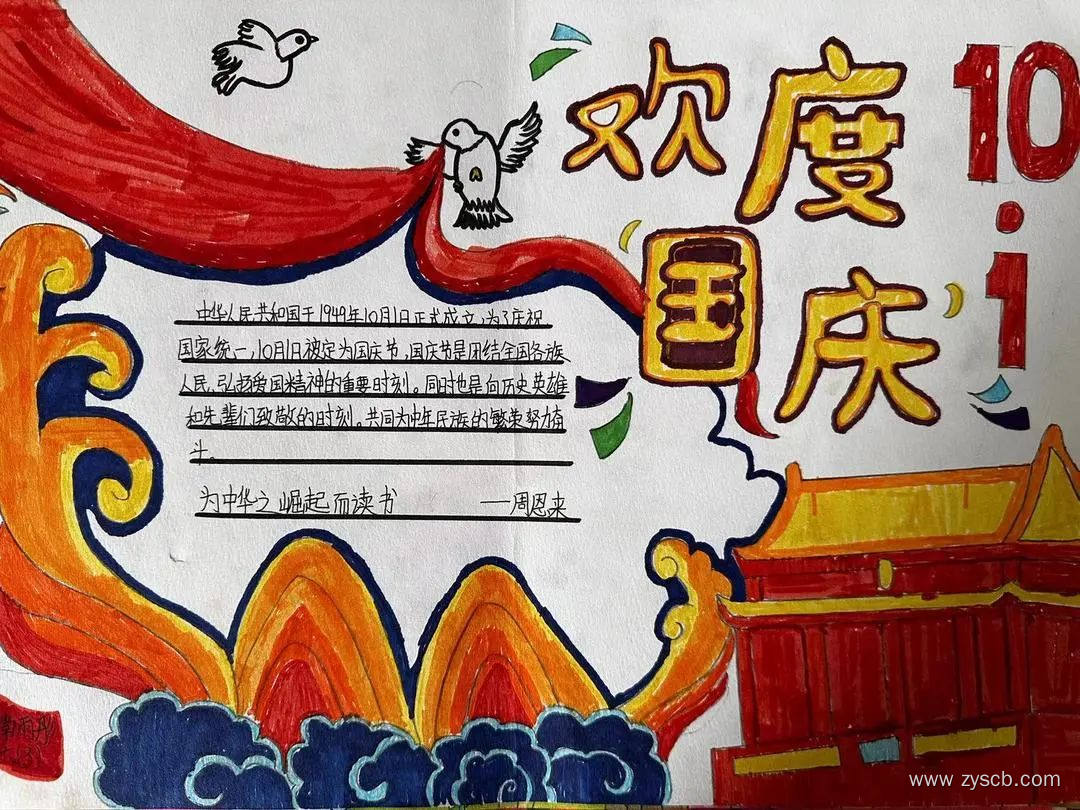 欢度
国庆
10.1
中华人民共和国于1949年10月1日正式成立,为了庆祝
国家统一,10月1日被定为国庆节,国庆节是团结全国各族
人民,弘扬爱国精神的重要时刻。同时也是向历史英雄
和先辈们致敬的时刻。共同为中华民族的繁荣努力奋
斗。
为中华之崛起而读书 ——周恩来
www.zyscb.com